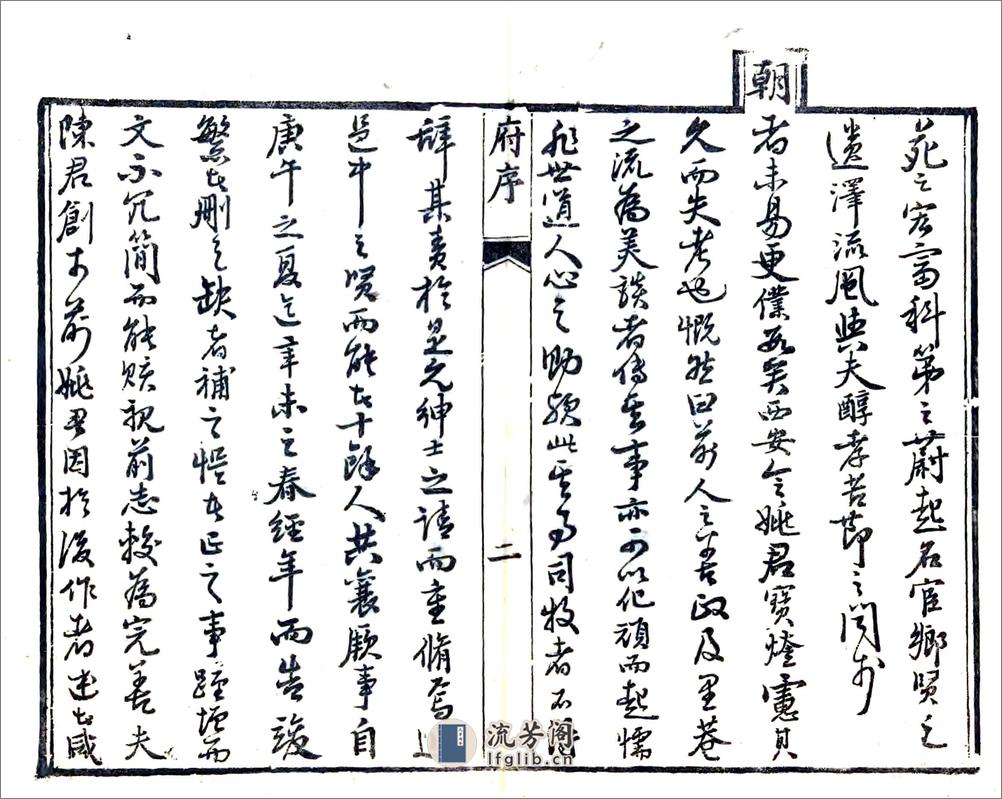 朝
苑之宏富科第之蔚起名宦鄉賢之
遺澤流風與夫醇孝苦節之門於
者未易更僕數矣西安令姚君寶煃憲其
久而失考也慨然曰前人之善政及里巷
之流為美談者傳其事亦可以化頑而起懦
非世道人心之助歟此其為司牧者不得
府序
二
辭其責於是允紳士之請而重脩焉
邑中之賢而能者十餘人共襄厥事自
庚午之夏迄辛未之春經年而告竣
繁者刪之缺者補之悞者正之事雖增而
文不冗簡而能賅視前志較為完善夫
陳君創於前姚君因於後作者述者咸
流芳阁
lfglib.cn